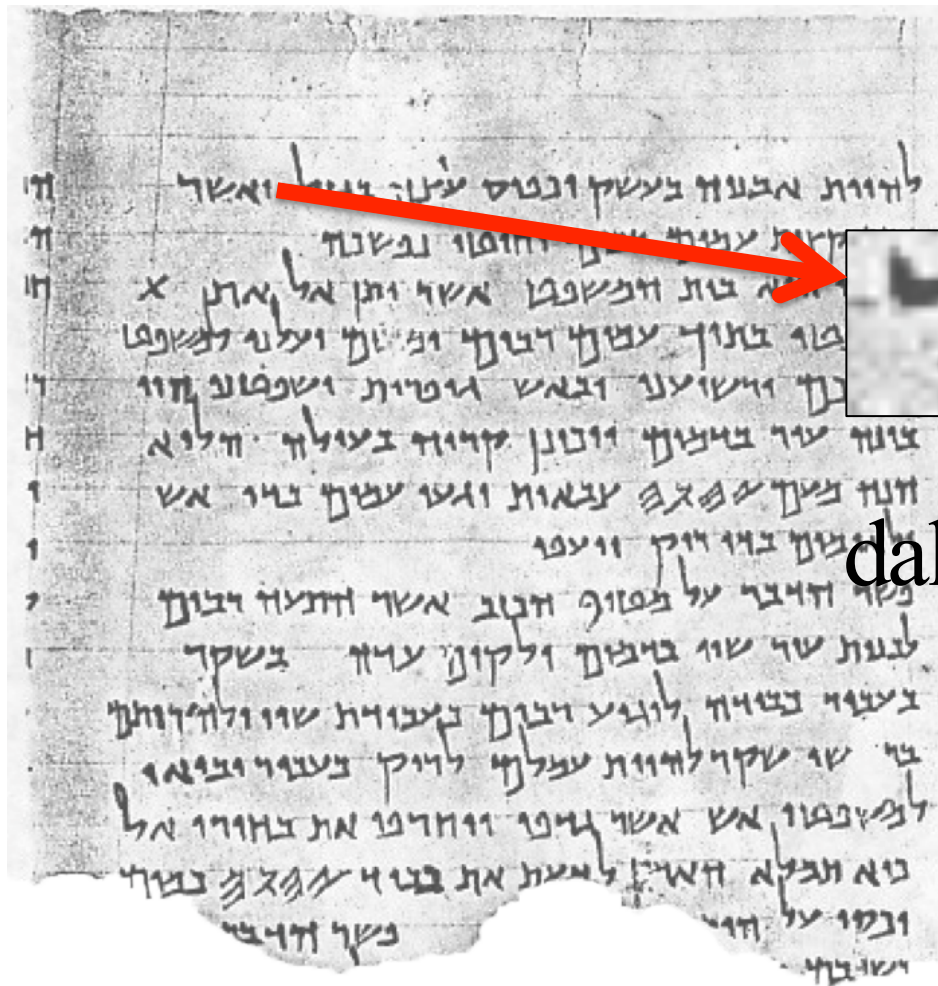 להיות אבניה בעשק וכפיס עיצה בגזל ואשר
קצות עמים רבים וחוטי נפשכה
הוא בית המשפט אשר יתן אל את X
בתוך עמים רבים ומשם יעלנו למשפט
ירשיענו ובאש גופרית ישפטנו הוי
בונה עיר בדמים ויכונן קריה בעולה הלוא
הנה מעם 𐤉𐤄𐤅𐤄 צבאות יגעו עמים בדי אש
ולאומים בדי ריק ייעפו
dal
פשר הדבר על מטיף הכזב אשר התעה רבים
לבנות עיר שוו בדמים ולקים עדה בשקר
בעבור כבודה לוגיע רבים בעבודת שוו ולהרותם
שקר להיות עמלם לריק בעבור יבואו
למשפטי אש אשר גדפו ויחרפו את בחירי אל
כיא תמלא הארץ לדעת את כבוד 𐤉𐤄𐤅𐤄 כמים
יכסו על פשר הדבר